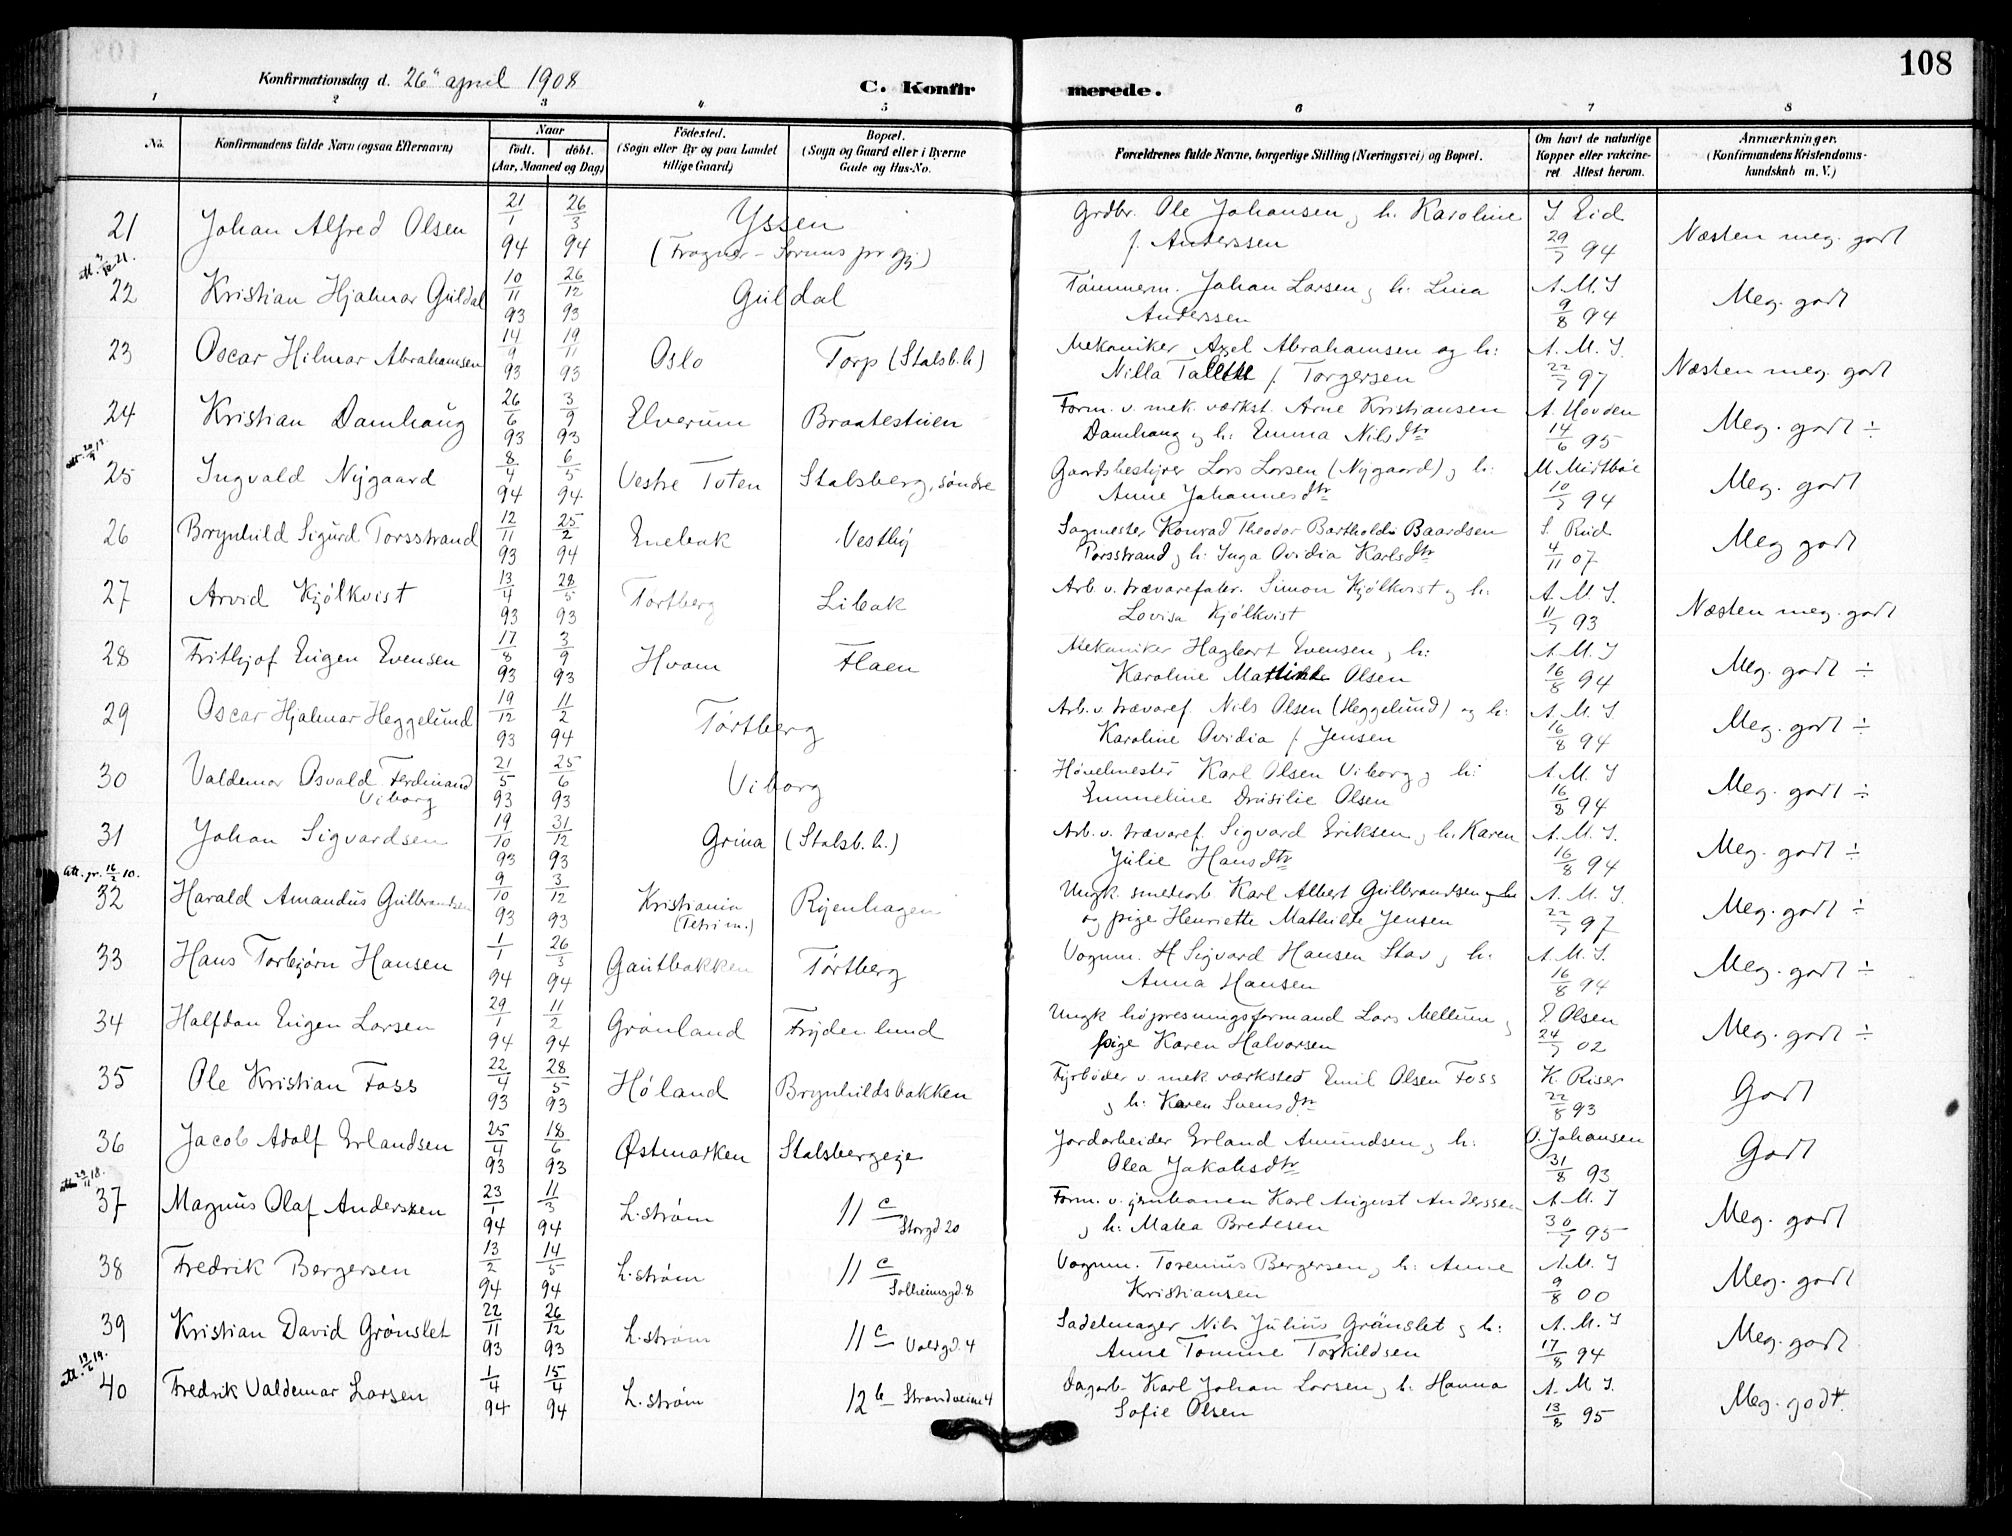 108
Konfirmationsdag d. 26" april 1908
C. Konfirmerede.
1 2 3 4 5 6 7 8
No. Konfirmandens fulde Navn (ogsaa Efternavn) Naar født. døbt. (Aar, Maaned og Dag) Fødested. (Sogn eller By og paa Landet tillige Gaard) Bopæl. (Sogn og Gaard eller i Byerne Gade og Hus-No. Forældrenes fulde Navne, borgerlige Stilling (Næringsvei) og Bopæl. Om havt de naturlige Kopper eller vakcineret Attest herom. Anmærkninger. (Konfirmandens Kristendomskundskab m. V.)
21 Johan Alfred Olsen 21/1 94 26/3 94 Yssen Grdbr. Ole Johansen og h. Karoline f. Anderssen S Eid 29/7 94 Næsten meg. godt
22 Kristian Hjalmar Guldal 10/11 93 26/12 93 Guldal Tømmerm. Johan Larsen og h. Lina Anderssen A. M. S 9/8 94 Meg. godt
23 Oscar Hilmar Abrahamsen 14/9 93 19/11 93 Oslo Torp (Stalsb.h) Mekaniker Axel Abrahamsen og h: Nilla f. Torgersen A. M. S. 22/7 97 Næsten meg. godt
24 Kristian Damhaug 26/6 93 3/9 93 Elverum Braatestuen Form. v. mek. værkst. Arne Kristiansen Damhaug og h: Emma Nilsdtr A. Hovden 14/6 95 Meg. godt ÷
25 Ingvald Nygaard 8/4 94 6/5 94 Vestre Toten Stalsberg, søndre Gaardsbestyrer Lars Larsen (Nygaard) og h: Anne Johannesdtr 10/7 94 Meg. godt
26 Brynhild Sigurd Torsstrand 12/11 93 25/2 94 Enebak Vestby Sagmester Konrad Theodor Bartholdi Baardsen Torsstrand og h: Inga Ovidia Karlsdtr S. Ruid 4/11 07 Meg godt
27 Arvid Kjølkvist 13/4 93 28/5 93 Tortberg Libak Arb. v. trævarefabr. Simon Kjølkvist og h: Lovisa Kjølkvist A. M. S. 11/7 93 Næsten meg. godt
28 Frithjof Eugen Evensen 17/8 93 3/9 93 Hvam Flaen Mekaniker Hagbart Evensen og h: Karoline Mathilde Olsen A. M. S 16/8 94 Meg. godt ÷
29 Oscar Hjalmar Heggelund 19/12 93 11/2 94 Tørtberg Arb. v. trævaref. Nils Olsen (Heggelund) og h: Karoline Ovidia f. Jensen A. M. S 16/8 94 Meg. godt ÷
30 Valdemar Osvald Ferdinand Viborg 21/5 93 25/6 93 Viborg Høvelmester Karl Olsen Viborg og h: Emmeline Drusilie Olsen A. M. S 16/8 94 Meg. godt ÷
31 Johan Sigvardsen 19/10 93 31/12 93 Grina (Stalsb. h.) Arb. v. trævaref. Sigvard Eriksen og h. Karen Julie Hansdtr A. M. S. 16/8 94 Meg. godt ÷
att. pr. 16/2 10.
32 Harald Amandus Gulbrandsen 9/10 93 3/12 93 Kristiania Ryenhagen Ungk. smedarb. Karl Albert Gulbrandsen og pige Henriette Mathilde Jensen A. M. S. 22/7 97 Meg. godt ÷
33 Hans Torbjørn Hansen 1/1 94 26/3 94 Gautbakken Tørtberg Vognm. H Sigvard Hansen Stav og h. Anna Hansen A. M. S. 16/8 94 Meg. godt ÷
34 Halfdan Eugen Larsen 29/1 94 11/2 94 Grønland Frydenlund Ungk høipresningsformand Lars Mellum og pige Karen Halvorsen E Olsen 24/7 02 Meg. godt ÷
35 Ole Kristian Foss 22/4 93 28/5 93 Høland Brynhildsbakken Fyrbøder v. mek værksted Emil Olsen Foss og h: Karen Svensdtr K. Riser 22/8 93 Godt
36 Jacob Adolf Erlandsen 25/4 93 18/6 93 Østmarken Stalsbergeje Jordarbeider Erland Amundsen og h: Olea Jakobsdtr O. Johansen 31/8 93 Godt
37 Magnus Olaf Anderssen 23/1 94 11/3 94 L.strøm 11 c Storgd 20 Form. v. jernbanen Karl August Anderssen og h: Matea Bredesen A. M. S 30/7 95 Meg. godt
38 Fredrik Bergersen 13/2 94 14/5 94 L.strøm 11 c Solheimsgd. 8 Vognm. Torenius Bergersen og h: Anne Kristiansen A. M. S 9/8 00 Meg. godt
39 Kristian David Grønslet 22/11 93 26/12 93 L.strøm 11 c Voldgd. 4 Sadelmager Nils Julius Grønslet og h: Anne Tomine Torkildsen A. M. S 17/8 94 Meg. godt
att. 19/6 19.
40 Fredrik Valdemar Larsen 1/4 94 15/4 94 L. strøm 12 b Strandveien 4 Dagarb. Karl Johan Larsen og h: Hanna Sofie Olsen A. M. S. 13/8 95 Meg. godt.